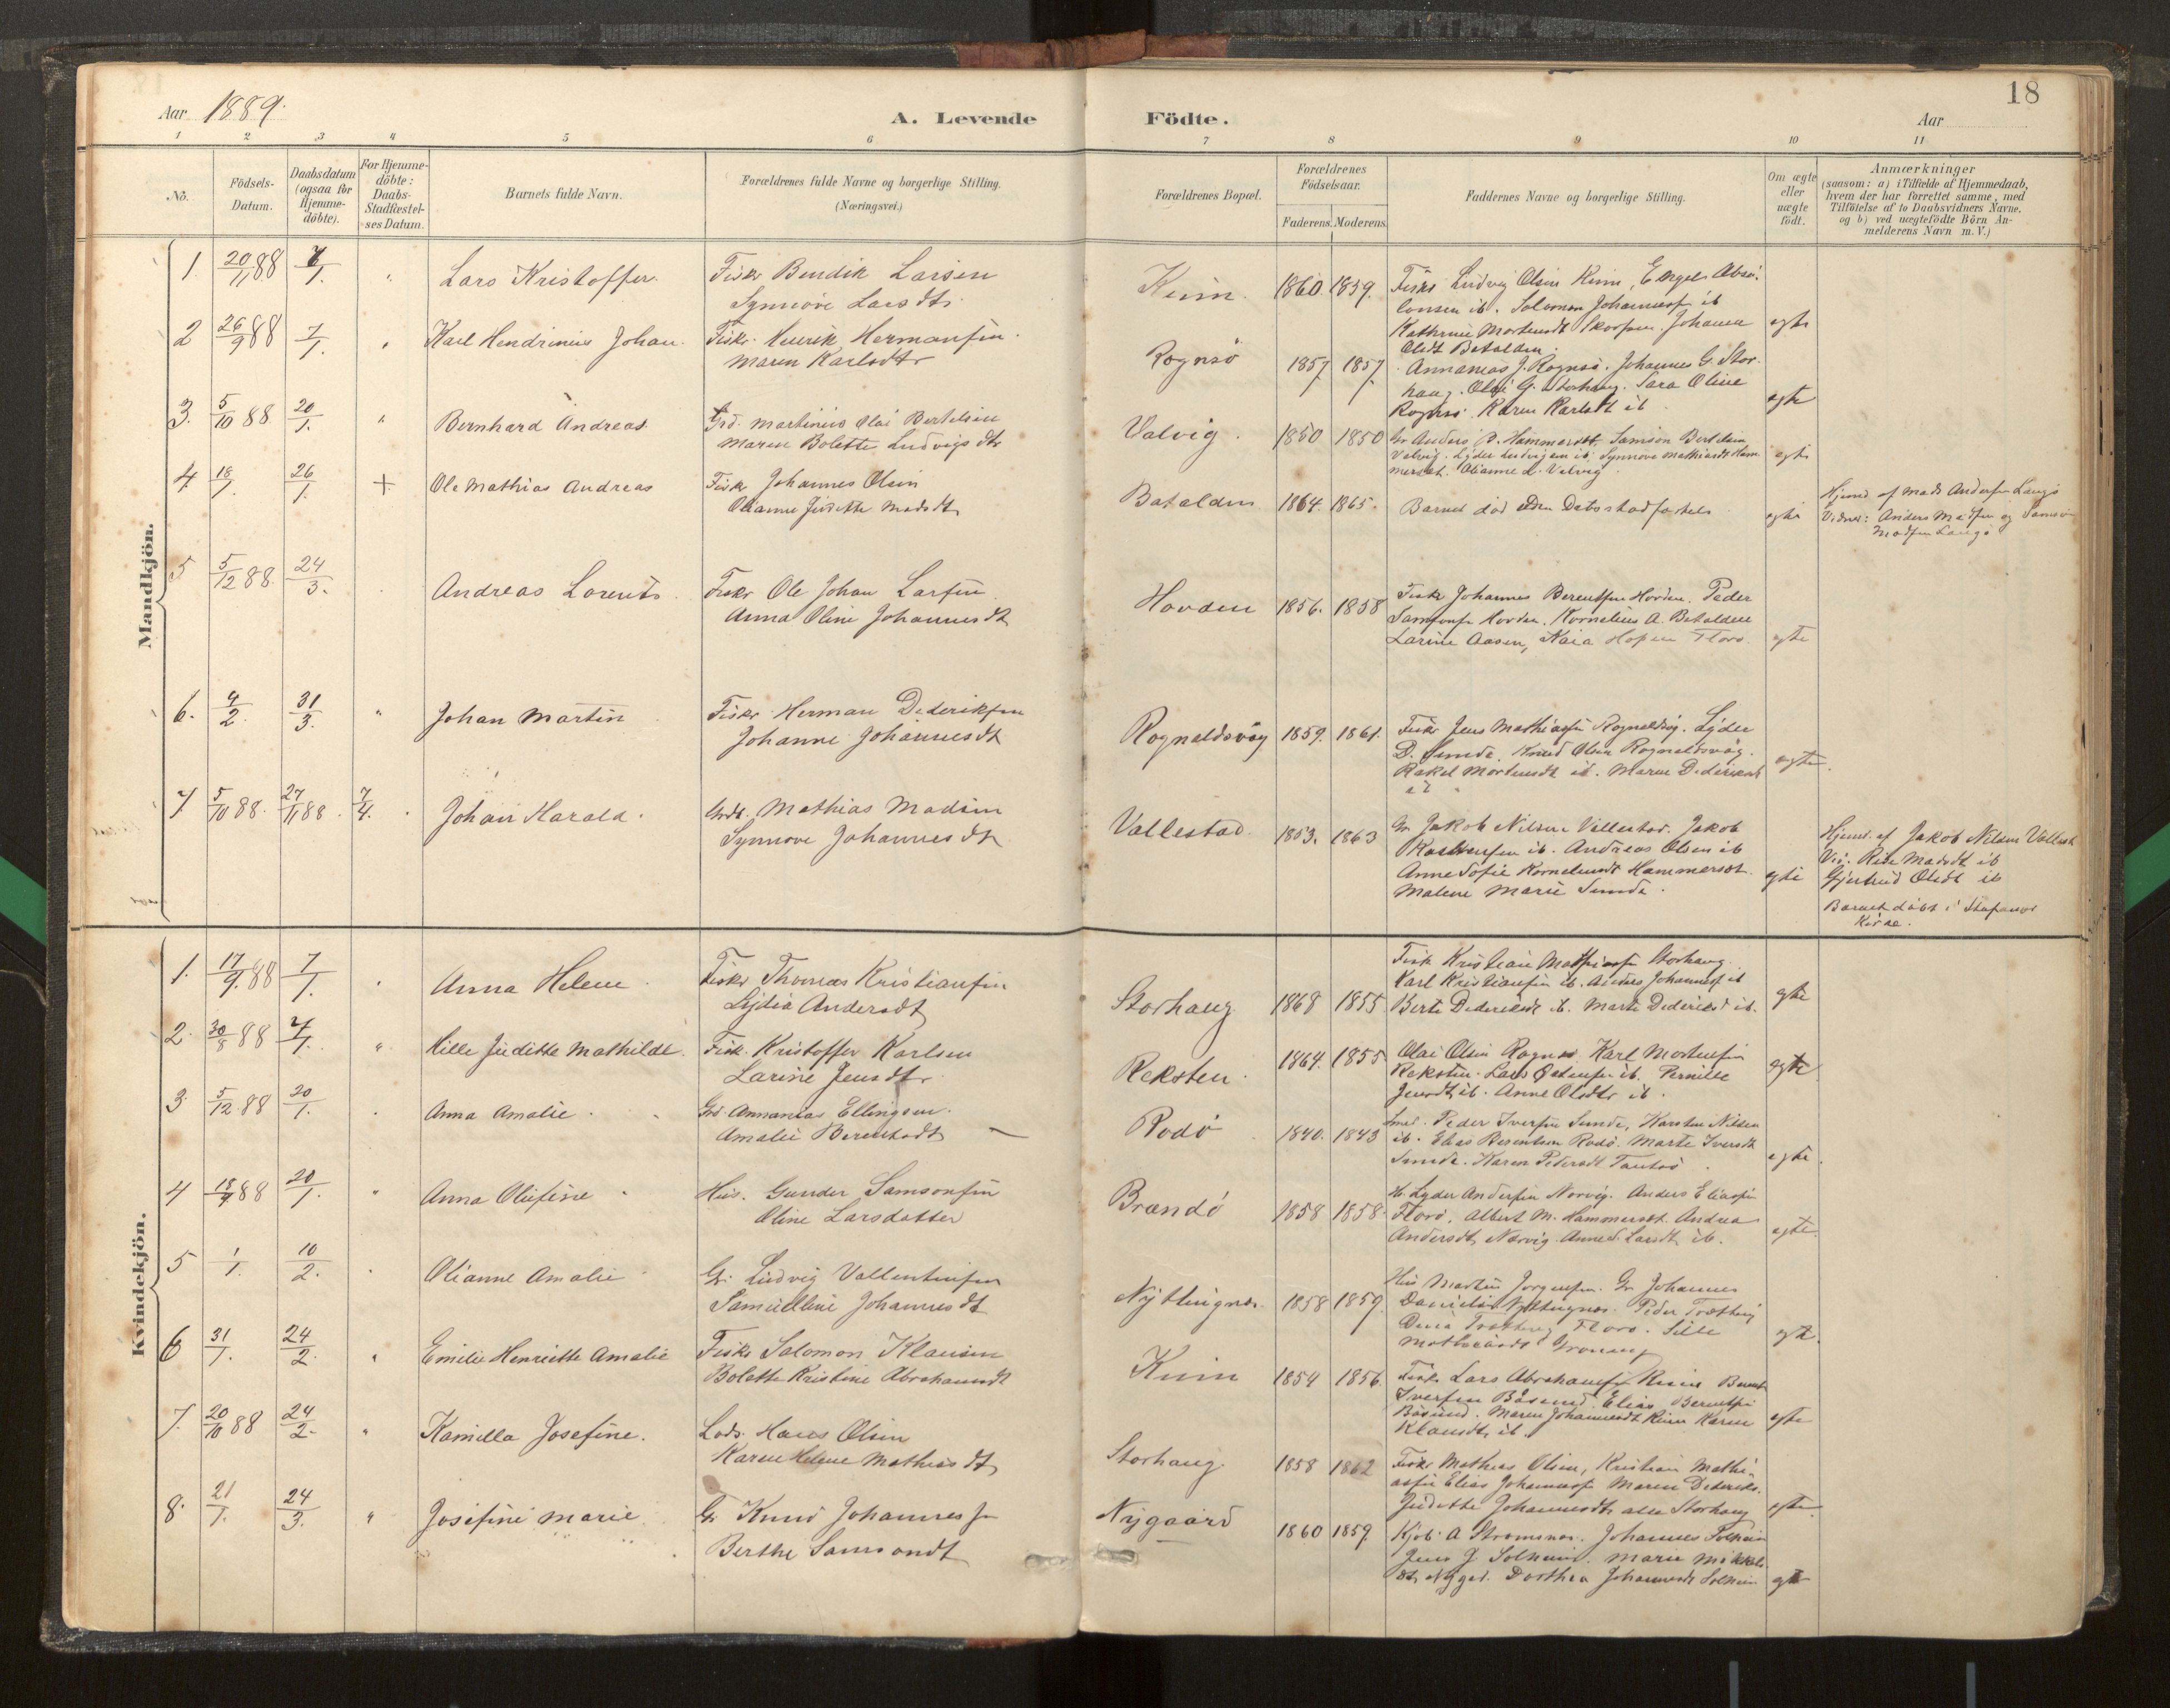 Aar 1889.
A. Levende Födte.
Aar
18
1 2 3 4 5 6 7 8 9 10 11
No.
Födsels-
Datum.
Daabsdatum
(ogsaa for
Hjemme-
döbte).
For Hjemme-
döbte:
Daabs-
Stadfæstel-
ses Datum.
Barnets fulde Navn.
Forældrenes fulde Navne og borgerlige Stilling.
(Næringsvei.)
Forældrenes Bopæl.
Forældrenes
Födselsaar.
Faderens. Moderens.
Faddernes Navne og borgerlige Stilling.
Om ægte
eller
uægte
födt.
Anmærkninger
(saasom: a) i Tilfælde af Hjemmedaab,
hvem der har forrettet samme, med
Tilföielse af to Daabsvidners Navne,
og b) ved uægtefödte Börn An-
melderens Navn m. V.)
Mandkjön.
1. 20/11 88 /1. " Lars Kristoffer.
Fisker Bendik Larsen
Synnöve Larsdtr.
Kinn. 1860. 1859.
Fisker Ludvig Olsen Kinn, Engel Absa-
lonsen ib. Salomon Johannesf ib
Kathrine Mortensdt Skorpen. Johanna
Olsdt Batalden.
egte
2 26/9 88 7/1. " Karl Hendrinius Johan.
Fisker. Henrik Hermansen.
Maren Karlsdtr
Rognsö 1857 1857
Annanias J. Rognsö. Johannes G. Stor-
haug. Olai G. Storhaug. Sara Oline
Rognsö. Karen Karlsdt ib
egte
3. 5/10 88 20/1. " Bernhard Andreas.
Grd. Martinius Olai Bertelsen
Maren Bolette Ludvigsdtr
Valvig. 1850 1850
Gr Anders B. Hammerset. Samson Bertelsen
Valvig. Lyder Ludvigsen ib; Synnove Mathiasdt Ham-
merset. Olianne L. Valvig.
egte
4. 18/1. 26/1. + Ole Mathias Andreas
Fisker Johannes Olsen
Olianne Judithe Madsdt.
Batalden 1864. 1865.
Barnet död Daabsstadfæstels
egte
Hjemd af Mads Andersen Langö
Vidner: Anders Madsen og Samson
Madsen Langö
5 5/12 88. 24/3. Andreas Lorents.
Fisker Ole Johan Larsen.
Anna Oline Johannesdt
Hovden 1856. 1858
Fisker Johannes Berentsen Hovden. Peder
Samsonsen Hovden. Kornelius A. Batalden
Larine Aasen, Kaia Hopen Florö.
egte
6. 4/2. 31/3. " Johan Martin
Fisker Herman Dederiksen
Johanne Johannesdt
Rognaldsvåg 1859. 1861.
Fisker Jens Mathiassen Rognaldsvåg. Lyder
D. Sunde. Knud Olsen Rognaldsvåg.
Rakel Mortensdt ib. Maren Dederiksdt
ib
egte.
7 5/10 88. 27/11 88. 7/4. Johan Harald.
Grdr. Mathias Madsen
Synnove Johannesdt
Vallestad. 1853. 1863
Gr Jakob Nilsen Vallestad. Jakob
ib. Andreas Olsen ib
Anne Sofie Korneliusdt Hammerset.
Malene Marie Sunde.
egte
Hjemd. af Jakob Nilsen Vallest
Vid. Madsdt ib
Gjertrud Olsdt ib
Barnet döbt i
Kirke.
Kvindekjön.
1. 17/9. 88 7/1. Anna Helene.
Fisker Thomas Kristiansen
Lydia Andersdt
Storhaug 1868 1855
Fisk Kristian Mathiassen Storhaug.
Karl Kristiansen ib. Anders Johannesf ib
Berte Dederiksdt ib. Marte Dederiksd ib.
egte
2. 30/8 88 7/1. " Hille Juditte Mathilde.
Fisk. Kristoffer Karlsen
Larine Jensdtr.
Reksten. 1864. 1855
Olai Olsen Rognsö. Karl Mortensen
Reksten. Lars Östensen ib. Pernille
Jensdt ib. Anne Olsdtr ib.
egte
3. 5/12. 88 20/1. Anna Amalie.
Grd. Annanias Ellingsen.
Amalie Berentsdt
Rodö 1840. 1843
Peder Iversen Sunde, Karsten Nilsen
ib. Elias Berentsen Rodö. Marte Iversdt
Sunde. Karen Pedersdt Tansö.
egte.
4 18/9 88 20/1. " Anna Olufine.
Hus. Gunder Samsonsen
Oline Larsdatter
Brandö 1858 1858.
Lyder Andersen Norvig. Anders Eliassen
Florö. Albert M. Hammerset. Andrea
Andersdt. Norvig. Larsdt. ib.
egte.
5 1/1. 10/2. Olianne Amalie
Gr. Ludvig Vallentinsen
Samuelline Johannesdt
Nyttingnes. 1858 1859.
Hus Martin Jorgensen. Gr Johannes
Danielsen Nyttingnes. Peder
Florö. Sille
egte.
6 31/1. 24/2. " Emilie Henriette Amalie
Fisker Salomon Klausen
Bolette Kristine Abrahamsdt
Kinn 1854 1856.
Fisker Lars Abrahamsen Kinn Berent
Iversen Båsund. Elias Berentsen
Båsund. Maren Johannesdt Kinn Karen
Klausdt. ib.
egte
7. 20/10 88 24/2. " Kamilla Josefine.
Lods. Hans Olsen
Karen Helene Mathiasdt.
Storhaug. 1858 1862
Fisker Mathias Olsen, Kristian Mathi-
assen Elias Johannesf Maren Dederiks.
Judithe Johannesdt. alle Storhaug
egte.
8. 21/1. 24/3. " Josefine Marie
Gr Knud Johannesf
Berthe Samsondt
Nygaard 1860 1859.
Kjöb. A Strömsnes. Johannes Solheim
Jens J Solheim. Marie Mikkels-
dt. Nygrd. Dorthea Johannesdt Solheim
egte